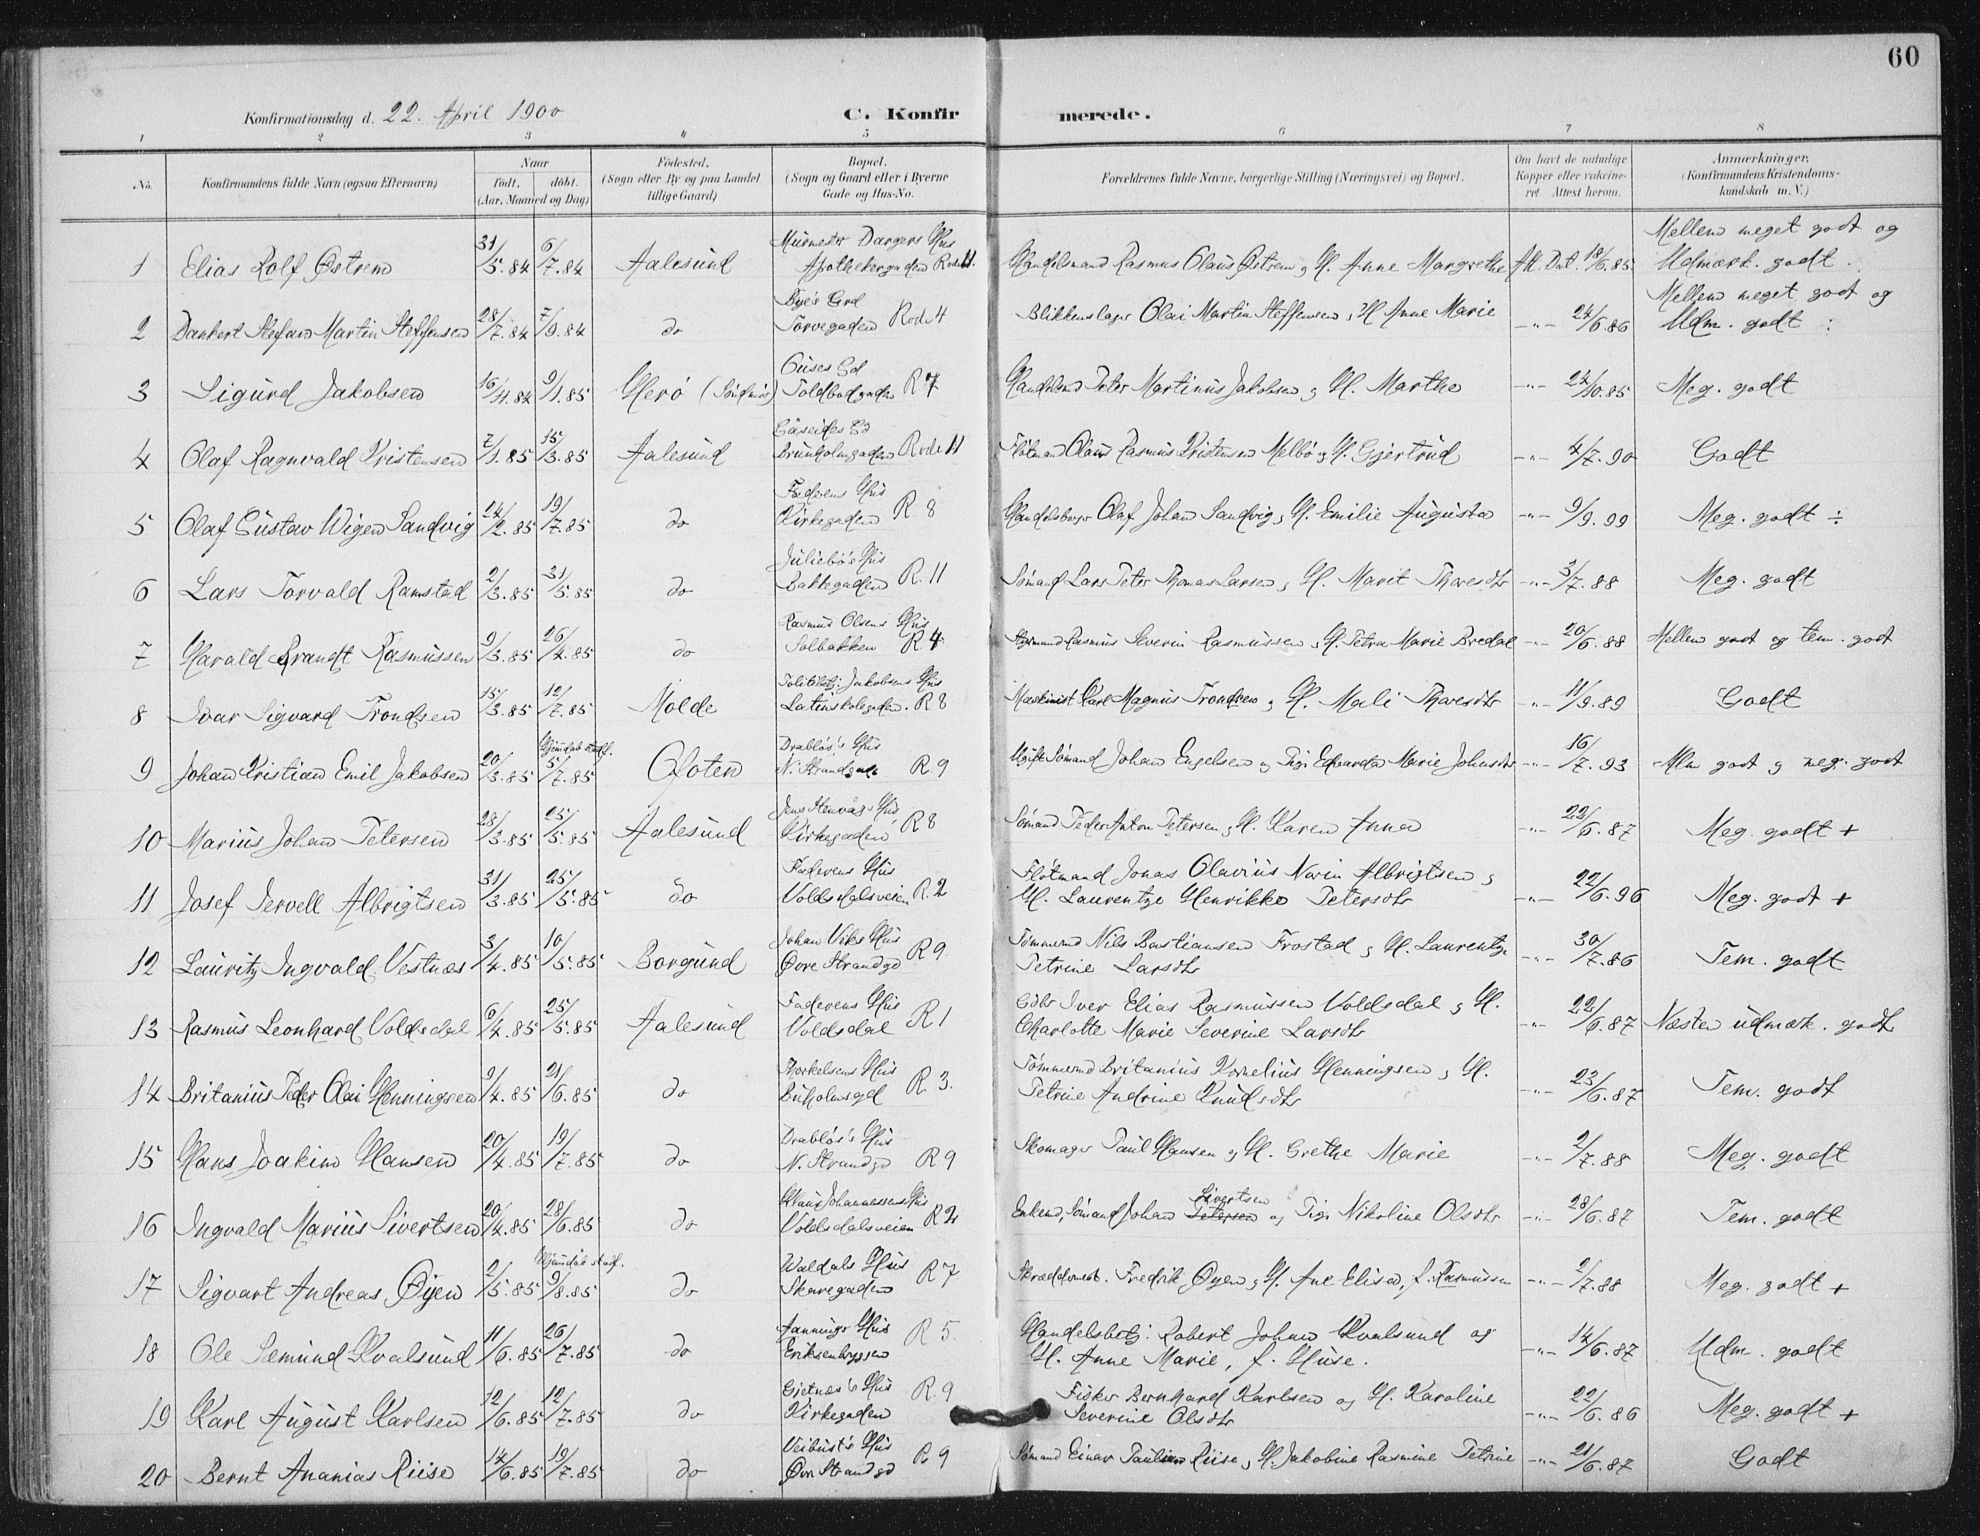 60
Konfirmationsdag d. 22. April 1900
C. Konfirmerede.
1 2 3 4 5 6 7 8
No.
Konfirmandens fulde Navn (ogsaa Efternavn)
Naar
födt. döbt.
(Aar, Maaned og Dag)
Födested.
(Sogn eller By og paa Landet tillige Gaard)
Bopæl.
(Sogn og Gaard eller i Byerne Gade og Hus-No.
Forældrenes fulde Navne, borgerlige Stilling (Næringsvei) og Bopæl.
Om havt de naturlige Kopper eller vakcineret. Attest herom.
Anmærkninger.
(Konfirmandens Kristendomskundskab m. V.)
1 Elias Rolf Østrem 31/5.84 6/7.84 Aalesund Murmester Dargers Hus Apothekergaden Rode 11. Handelsmand Rasmus Olaus Østrem og H. Anne Margrethe Att. Dat. 18/6.85 Mellem meget godt og Udmærk. godt.
2 Dankert Stefan Martin Steffensen 28/7.84 7/9.84 do Bye's Grd Torvegaden Rode 4 Blikkenslager Olai Martin Steffensen, H. Anne Marie -"- 24/6.86 Mellem meget godt og Udm. godt :
3 Sigurd Jakobsen 16/11.84 9/1.85 Herö (Söndmör) Ouses Gd Toldbodgaden R 7 Handelsmd Peter Martinus Jakobsen og H. Marthe -"- 24/10.85 Meg. godt
4 Olaf Ragnvald Kristensen 7/1.85 15/3.85 Aalesund Gåseides Gd Brunholmgaden Rode 11 Flötmand Olaus Rasmus Kristensen Melbö og H. Gjertrud -"- 4/7.90 Godt
5 Olaf Gustav Wigen Sandvig 24/2.85 19/7.85 do Faderens Hus Kirkegaden R. 8 Handelsborger Olaf Johan Sandvig, H. Emilie Augusta -"- 9/9.99 Meg. godt ÷
6 Lars Torvald Ramstad 2/3.85 31/5.85 do Juliebö's Hus Bakkegaden R. 11 Sömand Lars Peter Thomas Larsen, H. Marit Thoresdtr -"- 3/7.88 Meg. godt
7 Harald Brandt Rasmussen 9/3.85 26/4.85 do Rasmus Olsens Hus Solbakken R. 4 Rasmus Severin Rasmussen, H. Petra Marie Bredal -"- 20/6.88 Mellem godt og tem. godt
8 Ivar Sigvard Trondsen 15/3.85 12/7.85 Molde Politibetj. Jakobsens Hus Latinskolegaden. R 8 Maskinist Karl Magnus Trondsen og H. Mali Thoresdtr -"- 11/9.89 Godt
9 Johan Kristian Emil Jakobsen 20/3.85 Hjemdøb stadf. 5/7.85 Ofoten Drabløs's Hus N. Strandgade R. 9 Ugift Sömand Johan Engelsen og Pige Edvarda Marie Johnsdtr -"- 16/7.93 Mlm godt og meg. godt
10 Marius Johan Petersen 28/3.85 25/5.85 Aalesund Jens Stenvågs Hus Kirkegaden R 8 Sömand Peder Anton Petersen, H. Karen Anna -"- 22/6.87 Meg. godt +
11 Josef Jervell Albrigtsen 31/3.85 25/5.85 do Faderens Hus Voldsdalsveien R. 2 Flötmand Jonas Olavius Albrigtsen og H. Laurentze Henrikke Petersdtr -"- 22/6.96 Meg. godt +
12 Lauritz Ingvald Vestnæs 3/4.85 10/5.85 Borgund Johan Viks Hus Övre Strandgd R 9 Tömmermd Nils Bastiansen Frostad, H. Laurentze Petrine Larsdtr -"- 30/7.86 Tem. godt
13 Rasmus Leonhard Voldsdal 6/4.85 25/5.85 Aalesund Faderens Hus Voldsdal R 1 Gdbr Iver Elias Rasmussen Voldsdal og H. Charlotte Marie Severine Larsdtr -"- 22/6.87 Næsten udmærk. godt
14 Britanius Peder Olai Henningsen 9/4.85 21/6.85 do Thorkelsens Hus Buholmsgd R. 3. Tömmermd Britanius Kornelius Henningsen, H. Petrine Andrine Knudsdtr -"- 23/6.87 Tem. godt
15 Hans Joakim Hansen 20/4.85 19/7.85 do Drabløs's Hus N. Strandgd R 9 Skomager Paul Hansen og H. Grethe Marie -"- 2/7.88 Meg. godt
16 Ingvald Marius Sivertsen 20/4.85 28/6.85 do Johannessens Hus Voldsdalsveien R 2 Enkemd, Sömand Johan Petersen Sivertsen og Pige Nikoline Olsdtr -"- 28/6.87 Tem. godt
17 Sigvart Andreas Öyen 2/5.85 Hjemdøb stadf. 9/8.85 do Waldals Hus Skaregaden R 7 Skræddermest. Fredrik Öyen, H. Ane Elisa, f. Rasmussen -"- 2/7.88 Meg. godt +
18 Ole Semund Kvalsund 11/6.85 26/7.85 do Hannings Hus Eriksenbryggen R 5. Handelsbetj. Robert Johan Kvalsund og H. Anne Marie, f. Huse. -"- 14/6.87 Udm. godt
19 Karl August Karlsen 12/6.85 12/7.85 do Gjetnæs's Hus Kirkegaden R. 9 Fisker Bernhard Karlsen og H. Karoline Severine Olsdtr -"- 22/6.86 Meg. godt +
20 Bernt Ananias Riise 14/6.85 19/7.85 do Veibust's Hus Övr Strandgd R 9 Sömand Einar Paulsen Riise, H. Jakobine Rasmine Petrine -"- 21/6.87 Godt